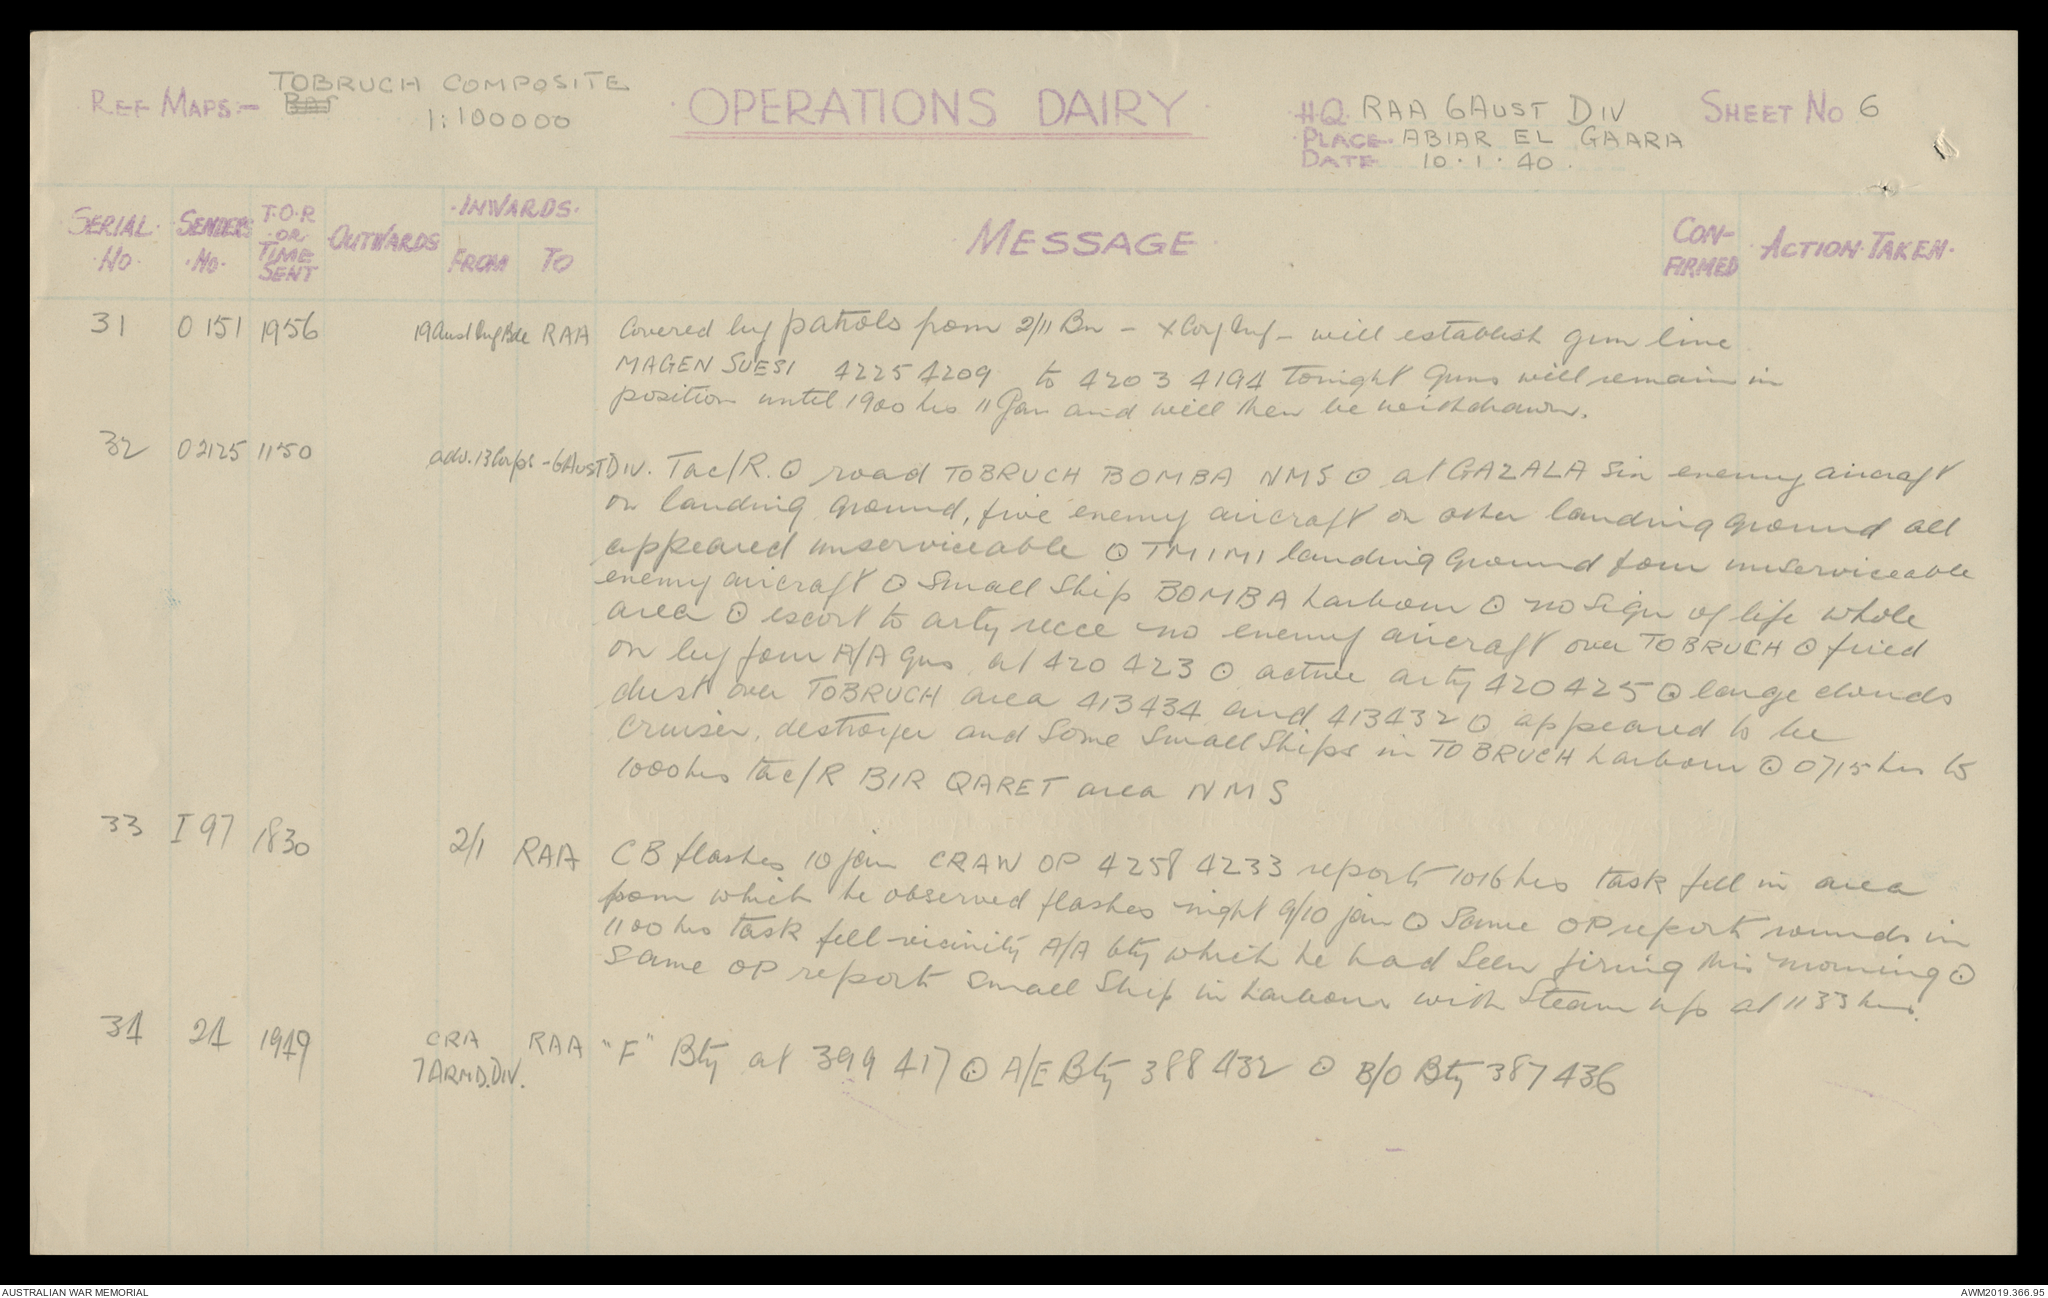 REF MAPS:- TOBRUCH COMPOSITE
1:100000
OPERATIONS DAIRY
H.Q. RAA 6 AUST DIV
PLACE. ABIAR EL GAARA
DATE 10.1.40.
SHEET NO 6
SERIAL NO.
SENDERS NO.
T.O.R OR TIME SENT
OUTWARDS
INWARDS.
FROM
TO
MESSAGE
CON-FIRMED
ACTION TAKEN.
31 O 151 1956 19 Aust Inf Bde RAA Covered by patrols from 2/11 Bn - X Coy Inf - will establish gun line
MAGEN SUESI 4225 4209 to 4203 4194 tonight Guns will remain in
position until 1900 hrs 11 Jan and will then be withdrawn.
32 O 2125 1150 adv. 13 Corps - 6 AUST DIV. Tac/R. ⊙ road TOBRUCH BOMBA NMS ⊙ at GAZALA Six enemy aircraft
on landing ground, five enemy aircraft on other landing ground all
appeared unserviceable ⊙ TMIMI landing ground four unserviceable
enemy aircraft ⊙ Small Ship BOMBA harbour ⊙ no sign of life whole
area ⊙ escort to arty recce no enemy aircraft over TOBRUCH ⊙ fired
on by four A/A gns at 420 423 ⊙ active arty 420425 ⊙ large clouds
dust over TOBRUCH area 413434 and 413432 ⊙ appeared to be
Cruiser, destroyer and Some Small Ships in TOBRUCH harbour ⊙ 0715 hrs to
1000 hrs tac/R BIR QARET area NMS
33 I 97 1830 2/1 RAA CB flashes 10 jan CRAW OP 4258 4233 reports 1016 hrs task fell in area
from which he observed flashes night 9/10 jan ⊙ Same OP report rounds in
1100 hrs task fell vicinity A/A bty which he had Seen firing this morning ⊙
Same OP reports small Ship in harbour with Steam up at 1133 hrs.
34 24 1949 CRA RAA "F" Bty at 399 417 ⊙ A/E Bty 388 432 ⊙ B/O Bty 387 436
7 ARMD. DIV.
AUSTRALIAN WAR MEMORIAL
AWM2019.366.95